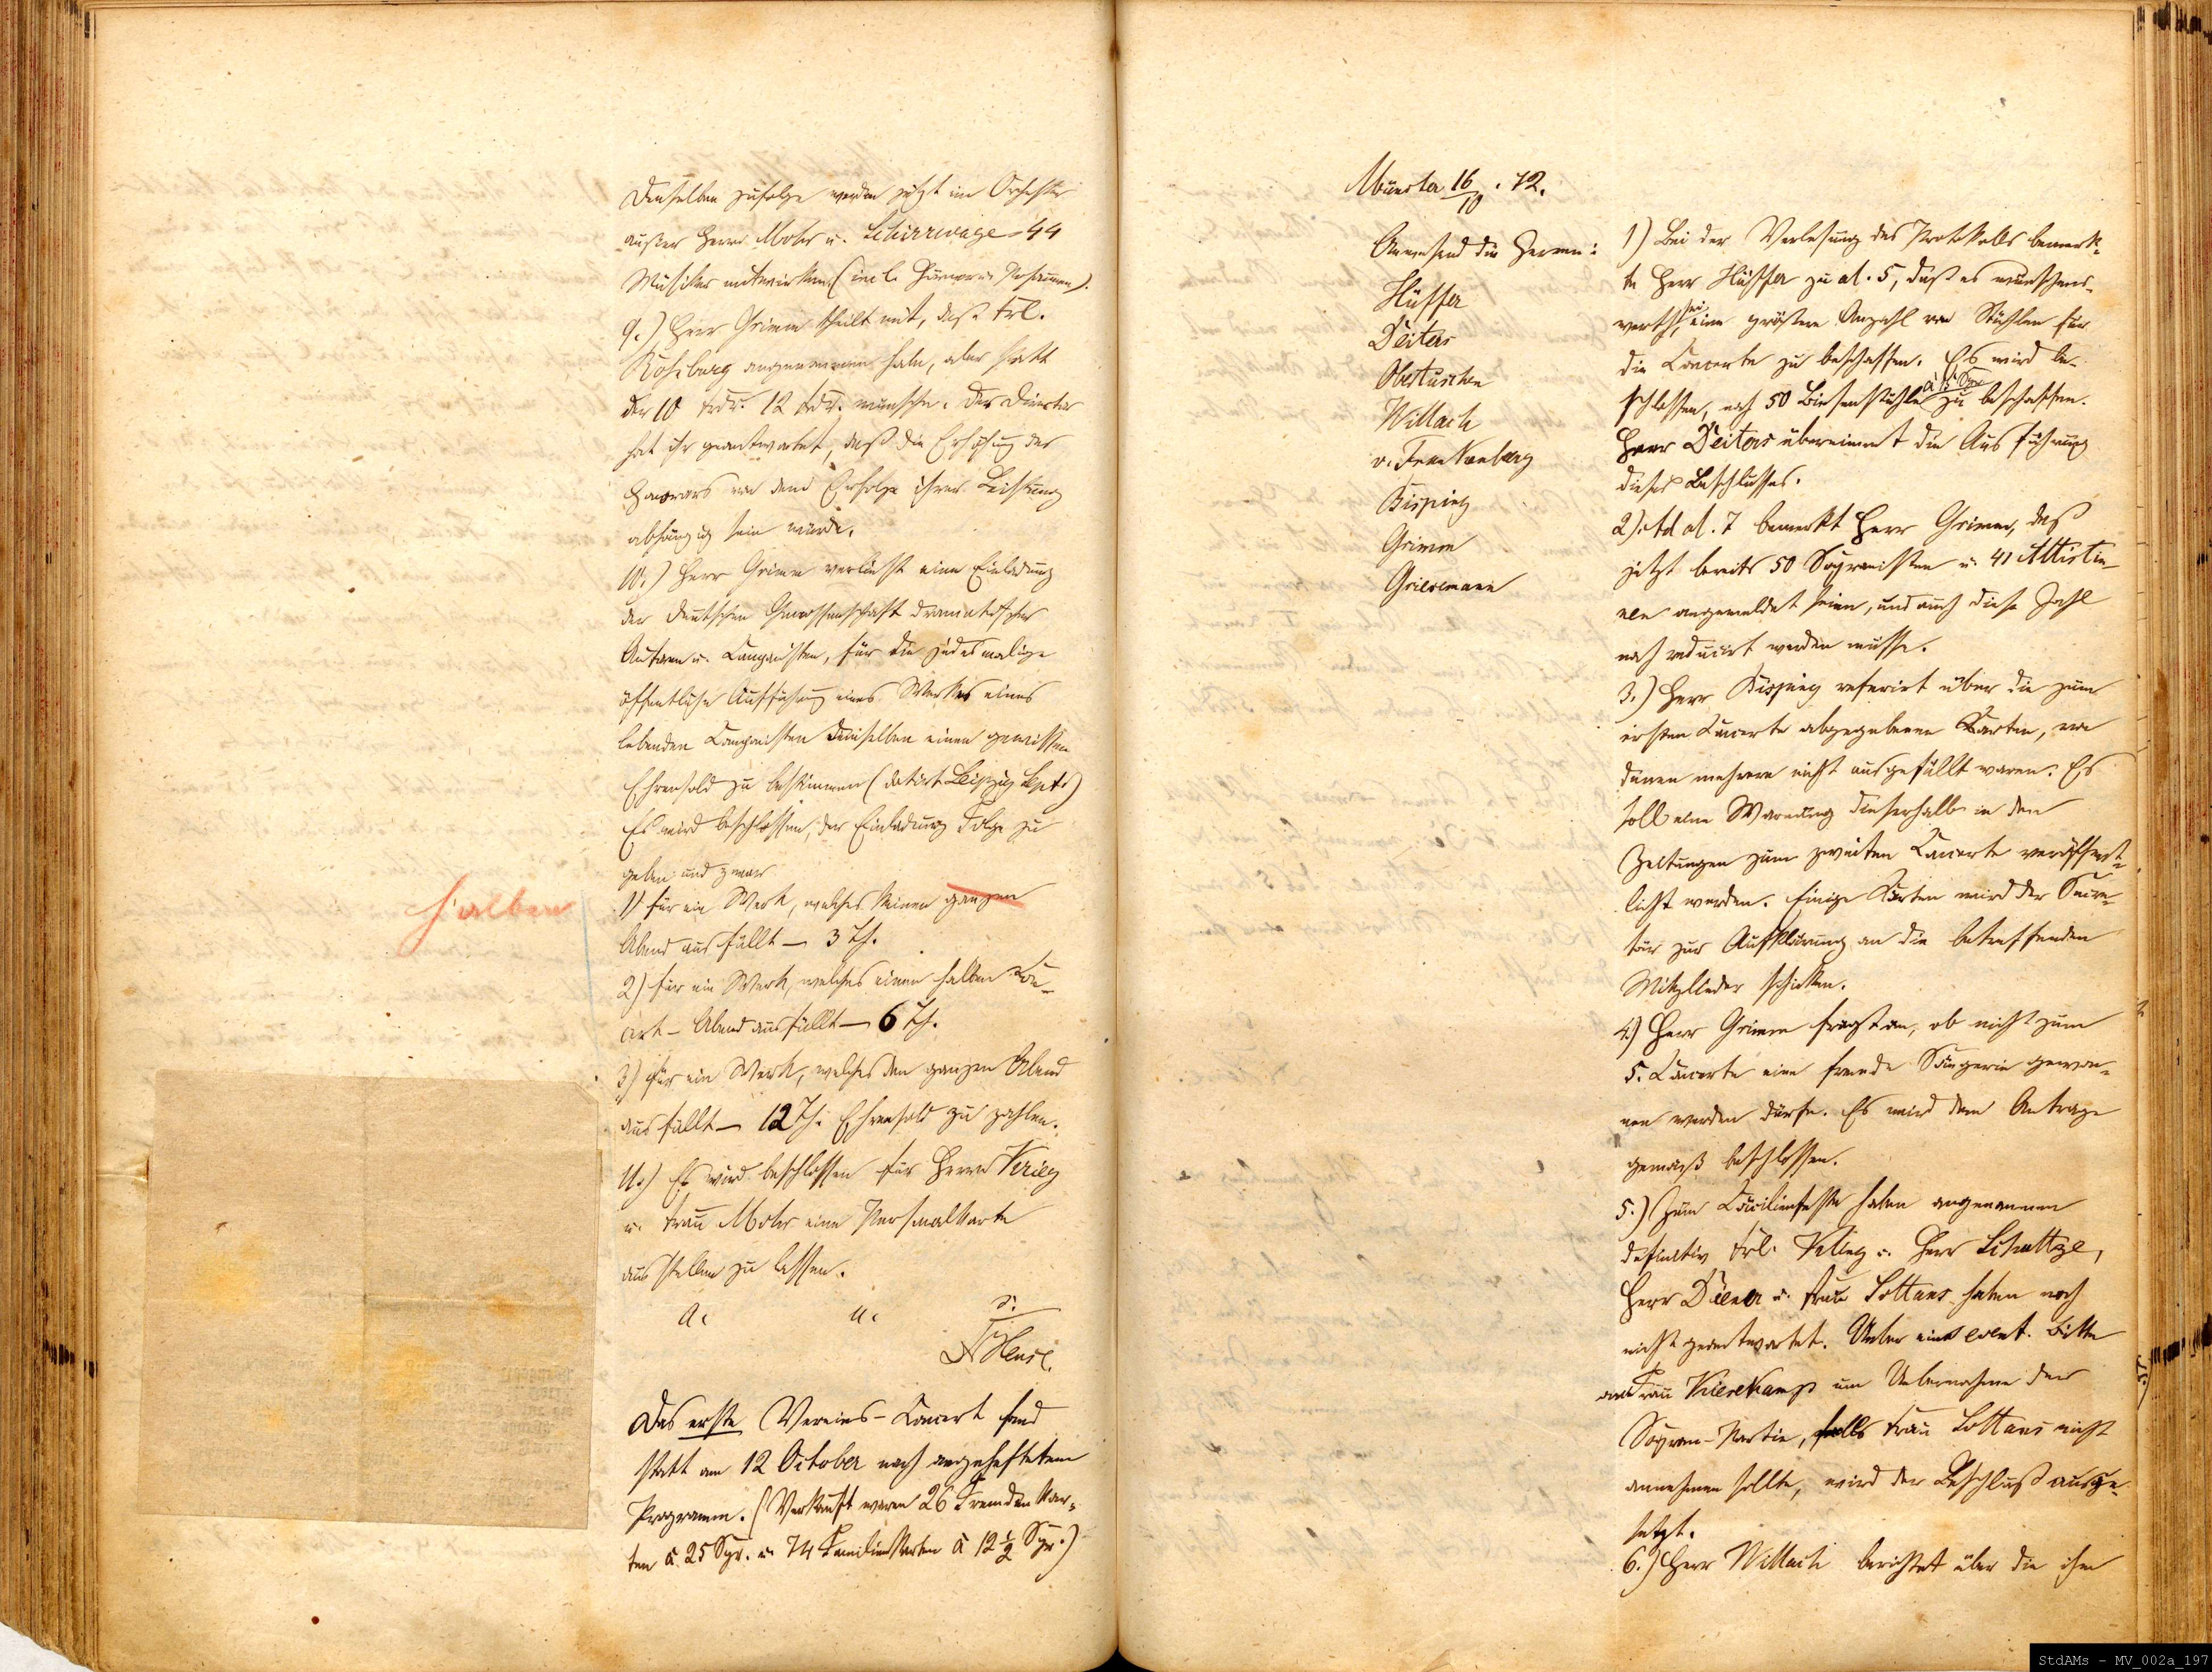 Denselben zufolge werden jetzt im Orchester
außer Herrn Mohr u. Schirrwage 44
Musiker mitwirken (incl. Hörner u. Posaunen).
9.) Herr Grimm theilt mit, daß Frl.
Kohsburg angenommen habe, aber statt
der 10 Frdr. 12 Frdr. wünsche. Der Director
hat ihr geantwortet, daß die Erhöhung des
Honorars von dem Erfolge ihrer Leistung
abhängig sein würde.
10.) Herr Grimm verliest eine Einladung
der deutschen Genossenschaft dramatischer
Autoren u. Componisten, für die jedesmalige
öffentliche Aufführung eines Werkes eines
lebenden Componisten demselben einen gewissen
Ehrensold zu bestimmen (datirt Leipzig Sept.)
Es wird beschlossen, der Einladung Folge zu
geben und zwar
1) für ein Werk, welches keinen ganzen
halben
Abend ausfüllt — 3 Th.
2) für ein Werk, welches einen halben Con-
cert-Abend ausfüllt — 6 Th.
3) für ein Werk, welches den ganzen Abend
ausfüllt — 12 Th. Ehrensold zu zahlen.
11.) Es wird beschlossen für Herrn Krieg
u. Frau Mohr eine Personalkarte
ausstellen zu lassen.
a. u. s.
Das erste Vereins-Concert fand
statt am 12 October nach angeheftetem
Programm. (Verkauft waren 26 Fremdenkar-
ten à 25 Sgr. u. 74 Familienkarten à 12 1/2 Sgr.)
Münster 16/10. 72.
Anwesend die Herren:
Hüffer
Deiters
Obertüschen
Willach
v. Frankenberg
Bisping
Grimm
Griesemann
1) Bei der Verlesung des Protokolls bemerk-
te Herr Hüffer zu al. 5, daß es wünschens-
werth sei, eine größere Anzahl von Stühlen für
die Concerte zu beschaffen. Es wird be-
schlossen, noch 50 Binsenstühle à 15 Sgr zu beschaffen.
Herr Deiters übernimmt die Ausführung
dieses Beschlusses.
2) Ad al. 7 bemerkt Herr Grimm, daß
jetzt bereits 50 Sopranisten u. 41 Altistin-
nen angemeldet seien, und auch diese Zahl
noch reducirt werden müsse.
3.) Herr Bisping referirt über die zum
ersten Concerte abgegebenen Karten, von
denen mehrere nicht ausgefüllt waren. Es
soll eine Warnung dieserhalb in den
Zeitungen zum zweiten Concerte veröffent-
licht werden. Einige Karten wird der Secre-
tär zur Aufklärung an die betreffenden
Mitglieder schicken.
4.) Herr Grimm fragt an, ob nicht zum
5. Concerte eine fremde Sängerin gewon-
nen werden dürfe. Es wird dem Antrage
gemäß beschlossen.
5.) Zum Cäcilienfeste haben angenommen
definitiv Frl. Kling u. Herr Schultze,
Herr Diener u. Frau Lottans haben noch
nicht geantwortet. Ueber eine event. Bitte
an Frau Kiesekamp um Uebernahme der
Sopran-Partie, falls Frau Lottans nicht
annehmen sollte, wird der Beschluß ausge-
setzt.
6.) Herr Willach berichtet über die ihm
StdAMs - MV_002a_197